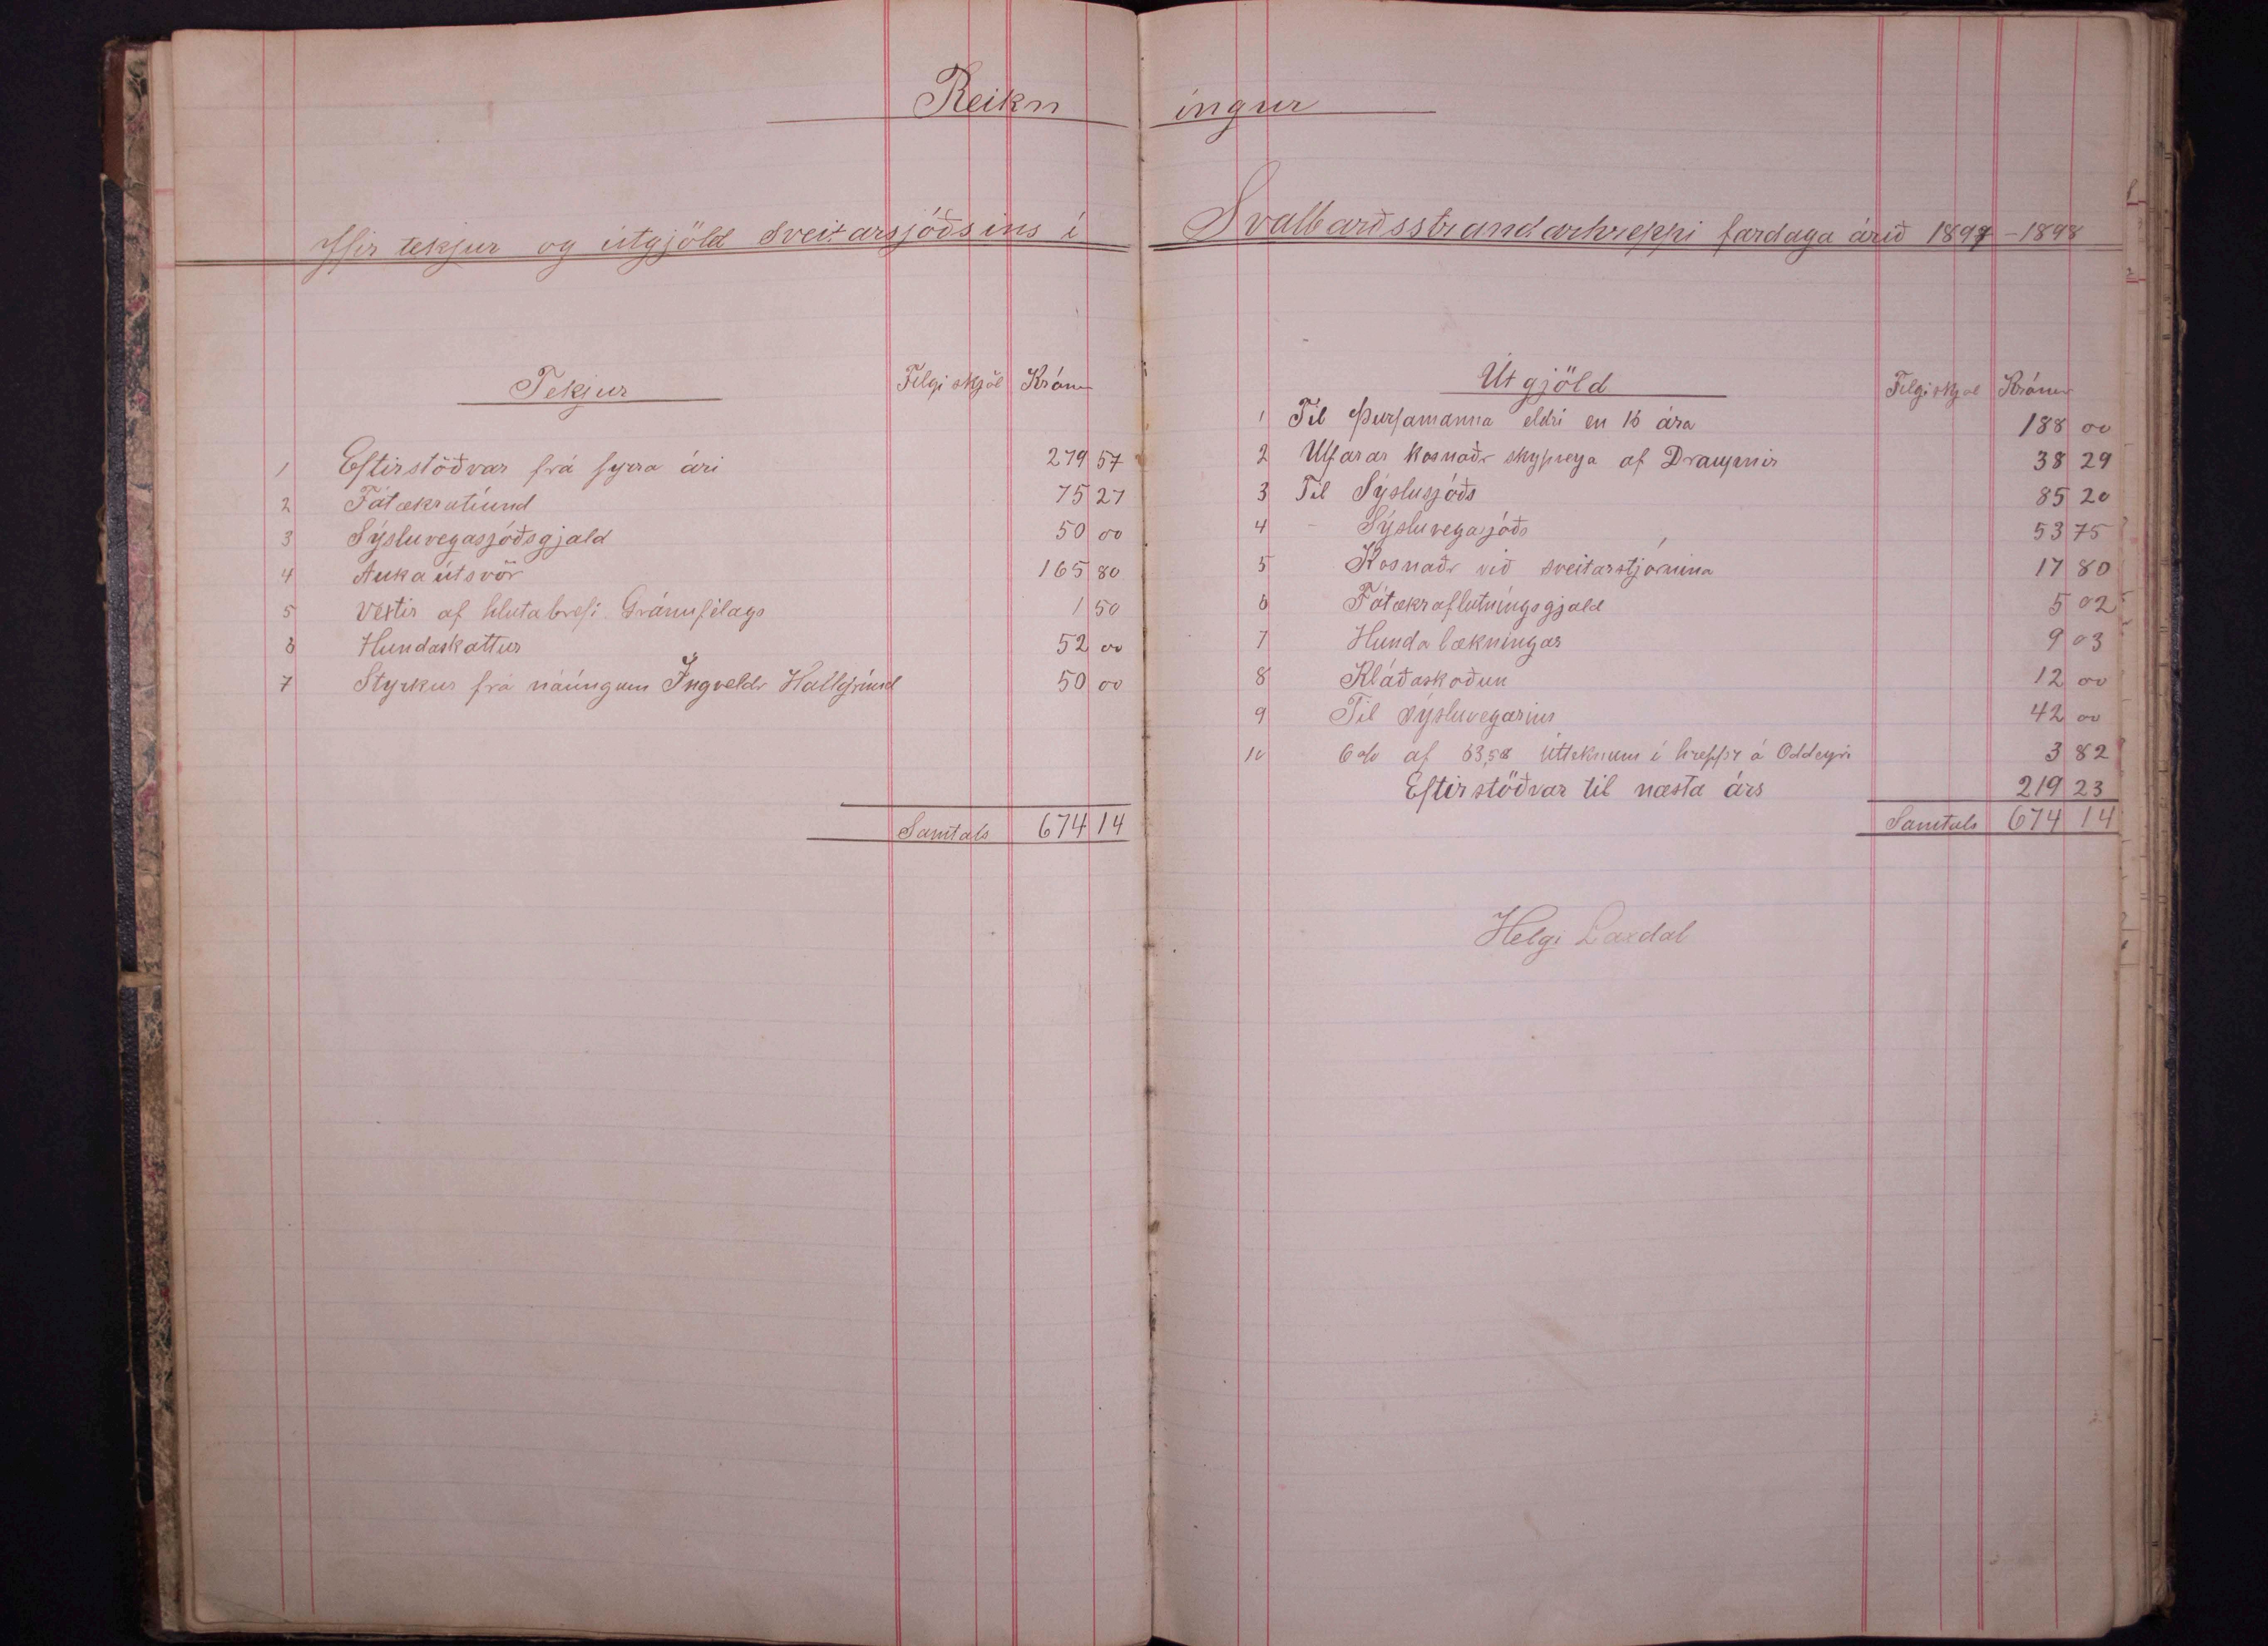 Reikningur
Yfir tekjur og útgjöld Sveitarsjóðsins í Svalbarðsstrandarhreppi fardaga árið 1897-1898
Tekjur Filgiskjöl Krónur
1 Eftirstöðvar frá fyrra ári 279 57
2 Fátækratíund 75 27
3 Sýsluvegasjóðsgjald 50 00
4 Auka útsvör 165 80
5 Vextir af hlutabrefi Gránufélags 1 50
6 Hundaskattur 52 00
7 Styrkur frá náúngum Ingveldr Hallgrímsd 50 00
Samtals 674 14
Útgjöld Filgiskjöl Krónur
1 Til Þurfamanna eldri en 16 ára 188 00
2 Utfarar kosnaðr af 38 29
3 Til Sýslusjóðs 85 20
4 - Sýsluvegasjóðs 53 75
5 Kosnaðr við sveitarstjórnina 17 80
6 Fátækraflutníngsgjald 5 02
7 Hunda lækníngar 9 03
8 Kláðaskoðun 12 00
9 Til Sýsluvegarins 42 00
10 6% af 63,58 Útteknum í hreppr á Oddeyri 3 82
Eftirstöðvar til næsta árs 219 23
Samtals 674 14
Helgi Laxdal